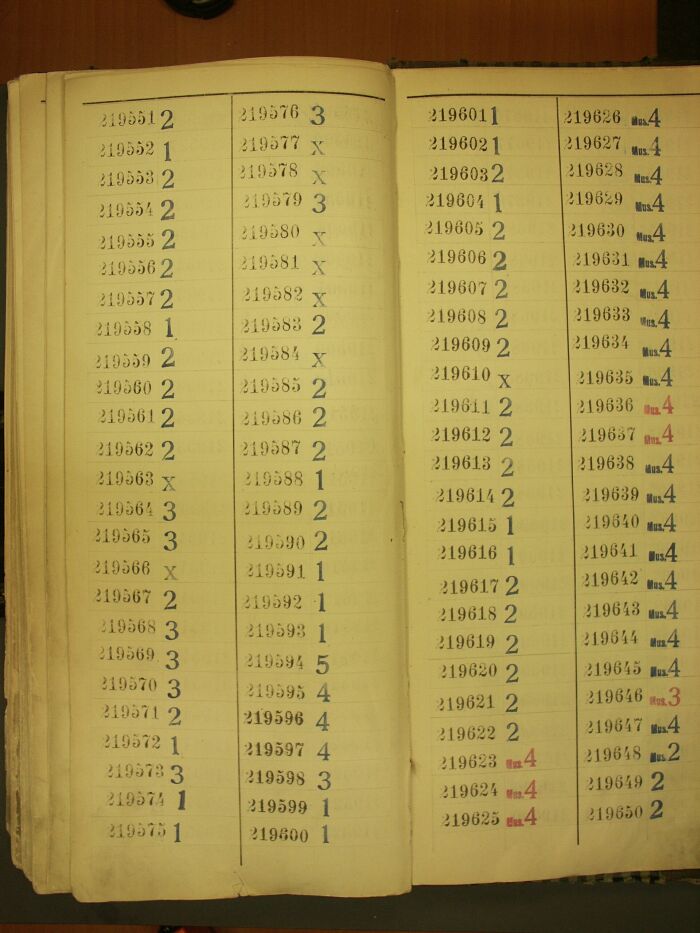 219551 2
219552 1
219553 2
219554 2
219555 2
219556 2
219557 2
219558 1
219559 2
219560 2
219561 2
219562 2
219563 X
219564 3
219565 3
219566 X
219567 2
219568 3
219569 3
219570 3
219571 2
219572 1
219573 3
219574 1
219575 1
219576 3
219577 X
219578 X
219579 3
219580 X
219581 X
219582 X
219583 2
219584 X
219585 2
219586 2
219587 2
219588 1
219589 2
219590 2
219591 1
219592 1
219593 1
219594 5
219595 4
219596 4
219597 4
219598 3
219599 1
219600 1
219601 1
219602 1
219603 2
219604 1
219605 2
219606 2
219607 2
219608 2
219609 2
219610 X
219611 2
219612 2
219613 2
219614 2
219615 1
219616 1
219617 2
219618 2
219619 2
219620 2
219621 2
219622 2
219623 Mus. 4
219624 Mus. 4
219625 Mus. 4
219626 Mus. 4
219627 Mus. 4
219628 Mus. 4
219629 Mus. 4
219630 Mus. 4
219631 Mus. 4
219632 Mus. 4
219633 Mus. 4
219634 Mus. 4
219635 Mus. 4
219636 Mus. 4
219637 Mus. 4
219638 Mus. 4
219639 Mus. 4
219640 Mus. 4
219641 Mus. 4
219642 Mus. 4
219643 Mus. 4
219644 Mus. 4
219645 Mus. 4
219646 Mus. 3
219647 Mus. 4
219648 Mus. 2
219649 2
219650 2